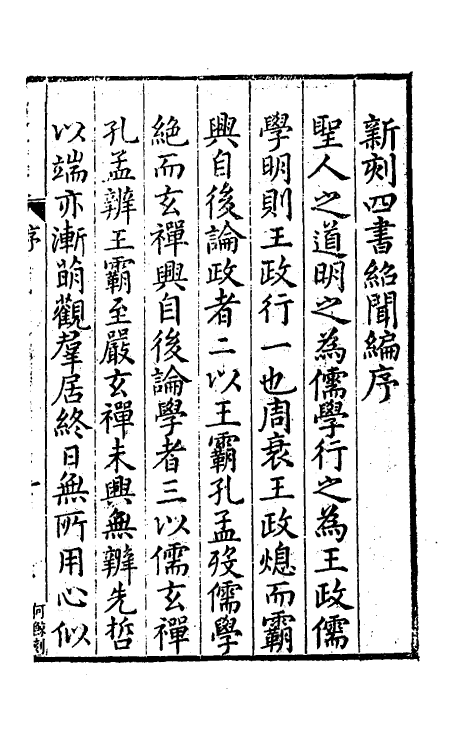 新刻四書紹聞編序
聖人之道明之為儒學行之為王政儒
學明則王政行一也周衰王政熄而霸
興自後論政者二以王霸孔孟歿儒學
絕而玄禪興自後論學者三以儒玄禪
孔孟辨王霸至嚴玄禪未興無辨先哲
以端亦漸萌觀羣居終日無所用心似
序
一
何鯨刻